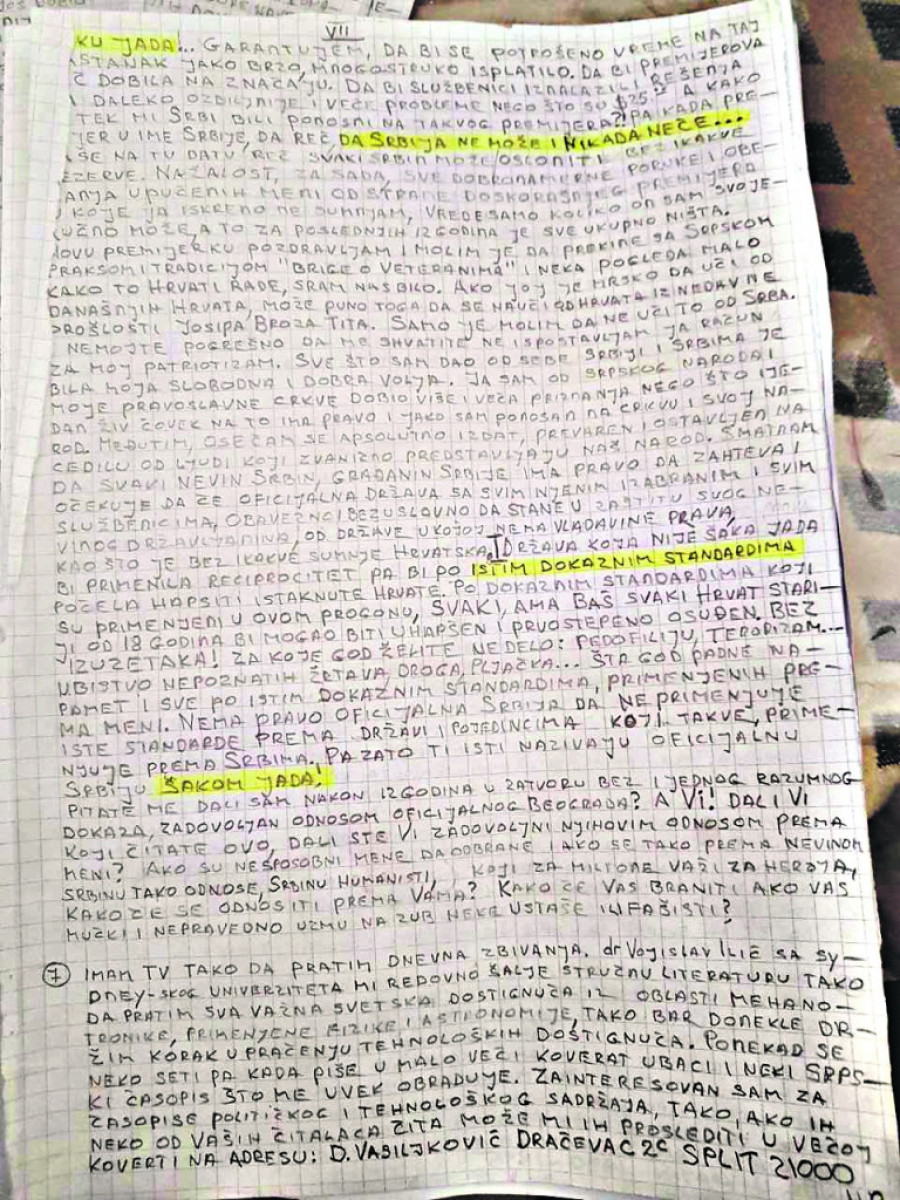 VII
KU JADA... GARANTUJEM, DA BI SE POTROŠENO VREME NA TAJ
ASTANAK JAKO BRZO, MNOGOSTRUKO ISPLATILO. DA BI PREMIJEROVA
Č DOBILA NA ZNAČAJU. DA BI SLUŽBENICI IZNALAZILI REŠENJA
I DALEKO OZBILJNIJE I VEĆE PROBLEME NEGO ŠTO SU $25.- A KAKO
TEK MI SRBI BILI PONOSNI NA TAKVOG PREMIJERA?! PA KADA PRE-
JER U IME SRBIJE, DA REČ DA SRBIJA NE MOŽE I NIKADA NEĆE...
ŠE NA TU DATU REČ SVAKI SRBIN MOŽE OSLONITI BEZ IKAKVE
EZERVE. NAŽALOST, ZA SADA, SVE DOBRONAMERNE PORUKE I OBE-
ANJA UPUĆENIH MENI OD STRANE DOSKORAŠNJEG PREMIJERA
KOJE JA ISKRENO NE SUMNJAM, VREDE SAMO KOLIKO ON SAM SVOJE-
UČNO MOŽE, A TO ZA POSLEDNJIH 12 GODINA JE SVE UKUPNO NIŠTA.
NOVU PREMIJERKU POZDRAVLJAM I MOLIM JE DA PREKINE SA SRPSKOM
PRAKSOM I TRADICIJOM "BRIGE O VETERANIMA" I NEKA POGLEDA MALO
KAKO TO HRVATI RADE, SRAM NAS BILO. AKO JOJ JE MRSKO DA UČI OD
DANAŠNJIH HRVATA, MOŽE PUNO TOGA DA SE NAUČI OD HRVATA IZ NEDAVNE
PROŠLOSTI JOSIPA BROZA TITA. SAMO JE MOLIM DA NE UČI TO OD SRBA.
NEMOJTE POGREŠNO DA ME SHVATITE NE ISPOSTAVLJAM JA RAČUN
ZA MOJ PATRIOTIZAM. SVE ŠTO SAM DAO OD SEBE SRBIJI I SRBIMA JE
BILA MOJA SLOBODNA I DOBRA VOLJA. JA SAM OD SRPSKOG NARODA I
MOJE PRAVOSLAVNE CRKVE DOBIO VIŠE I VEĆA PRIZNANJA NEGO ŠTO IJE-
DAN ŽIV ČOVEK NA TO IMA PRAVO I JAKO SAM PONOSAN NA CRKVU I SVOJ NA-
ROD. MEĐUTIM, OSEĆAM SE APSOLUTNO IZDAT, PREVAREN I OSTAVLJEN NA
CEDILU OD LJUDI KOJI ZVANIČNO PREDSTAVLJAJU NAŠ NAROD. SMATRAM
DA SVAKI NEVIN SRBIN, GRAĐANIN SRBIJE IMA PRAVO DA ZAHTEVA I
OČEKUJE DA ĆE OFICIJALNA DRŽAVA SA SVIM NJENIM IZABRANIM I SVIM
SLUŽBENICIMA, OBAVEZNO I BEZUSLOVNO DA STANE U ZAŠTITU SVOG NE-
VINOG DRŽAVLJANINA, OD DRŽAVE U KOJOJ NEMA VLADAVINE PRAVA,
KAO ŠTO JE BEZ IKAKVE SUMNJE HRVATSKA. I DRŽAVA KOJA NIJE ŠAKA JADA
BI PRIMENILA RECIPROCITET PA BI PO ISTIM DOKAZNIM STANDARDIMA
POČELA HAPSITI ISTAKNUTE HRVATE. PO DOKAZNIM STANDARDIMA KOJI
SU PRIMENJENI U OVOM PROGONU, SVAKI, AMA BAŠ SVAKI HRVAT STARI-
JI OD 18 GODINA BI MOGAO BITI UHAPŠEN I PRVOSTEPENO OSUĐEN. BEZ
IZUZETAKA! ZA KOJE GOD ŽELITE NEDELO: PEDOFILIJU, TERORIZAM...
UBISTVO NEPOZNATIH ŽRTAVA, DROGA, PLJAČKA... ŠTA GOD PADNE NA-
PAMET I SVE PO ISTIM DOKAZNIM STANDARDIMA, PRIMENJENIH PRE-
MA MENI. NEMA PRAVO OFICIJALNA SRBIJA DA NE PRIMENJUJE
ISTE STANDARDE PREMA DRŽAVI I POJEDINCIMA KOJI TAKVE, PRIME-
NJUJE PREMA SRBIMA. PA ZATO TI ISTI NAZIVAJU OFICIJALNU
SRBIJU ŠAKOM JADA!
PITATE ME DALI SAM NAKON 12 GODINA U ZATVORU BEZ IJEDNOG RAZUMNOG
DOKAZA, ZADOVOLJAN ODNOSOM OFICIJALNOG BEOGRADA? A VI! DALI VI
KOJI ČITATE OVO, DALI STE VI ZADOVOLJNI NJIHOVIM ODNOSOM PREMA
MENI? AKO SU NESPOSOBNI MENE DA ODBRANE I AKO SE TAKO PREMA NEVINOM
SRBINU TAKO ODNOSE, SRBINU HUMANISTI, KOJI ZA MILIONE VAŽI ZA HEROJA,
KAKO ĆE SE ODNOSITI PREMA VAMA? KAKO ĆE VAS BRANITI AKO VAS
MUČKI I NEPRAVEDNO UZMU NA ZUB NEKE USTAŠE ILI FAŠISTI?
7 IMAM TV TAKO DA PRATIM DNEVNA ZBIVANJA. dr VOJISLAV ILIĆ SA SY-
DNEY-SKOG UNIVERZITETA MI REDOVNO ŠALJE STRUČNU LITERATURU TAKO
DA PRATIM SVA VAŽNA SVETSKA DOSTIGNUĆA IZ OBLASTI MEHANO-
TRONIKE, PRIMENJENE FIZIKE I ASTRONOMIJE, TAKO BAR DONEKLE DR-
ŽIM KORAK U PRAĆENJU TEHNOLOŠKIH DOSTIGNUĆA. PONEKAD SE
NEKO SETI PA KADA PIŠE U MALO VEĆI KOVERAT UBACI I NEKI SRPS-
KI ČASOPIS ŠTO ME UVEK OBRADUJE. ZAINTERESOVAN SAM ZA
ČASOPISE POLITIČKOG I TEHNOLOŠKOG SADRŽAJA, TAKO, AKO IH
NEKO OD VAŠIH ČITALACA ČITA MOŽE MI IH PROSLEDITI U VEĆOJ
KOVERTI NA ADRESU: D. VASILJKOVIĆ DRAČEVAC 2C SPLIT 21000